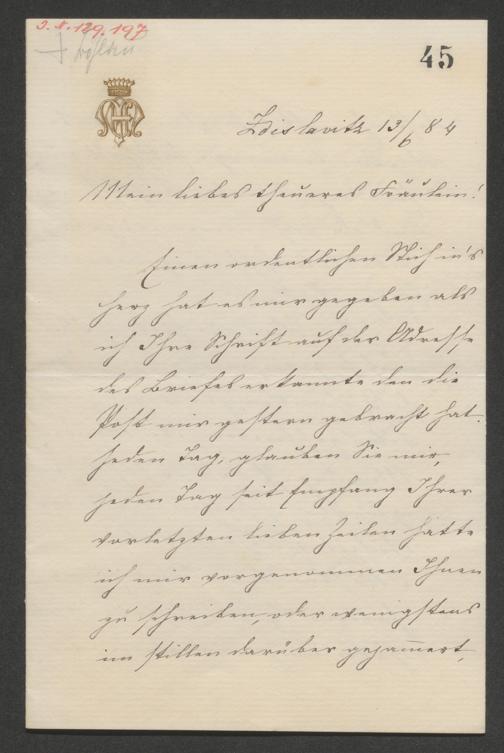 I. N. 129.197
45
Zdislavitz 13/6 84
Mein liebes theueres Fräulein!
Einen ordentlichen Stich in's
Herz hat es mir gegeben als
ich Ihre Schrift auf der Adresse
des Briefes erkannte den die
Post mir gestern gebracht hat.
Jeden Tag, glauben Sie mir,
jeden Tag seit Empfang Ihrer
vorletzten lieben Zeilen hatte
ich mir vorgenommen Ihnen
zu schreiben, oder wenigstens
im stillen darüber gejammert,